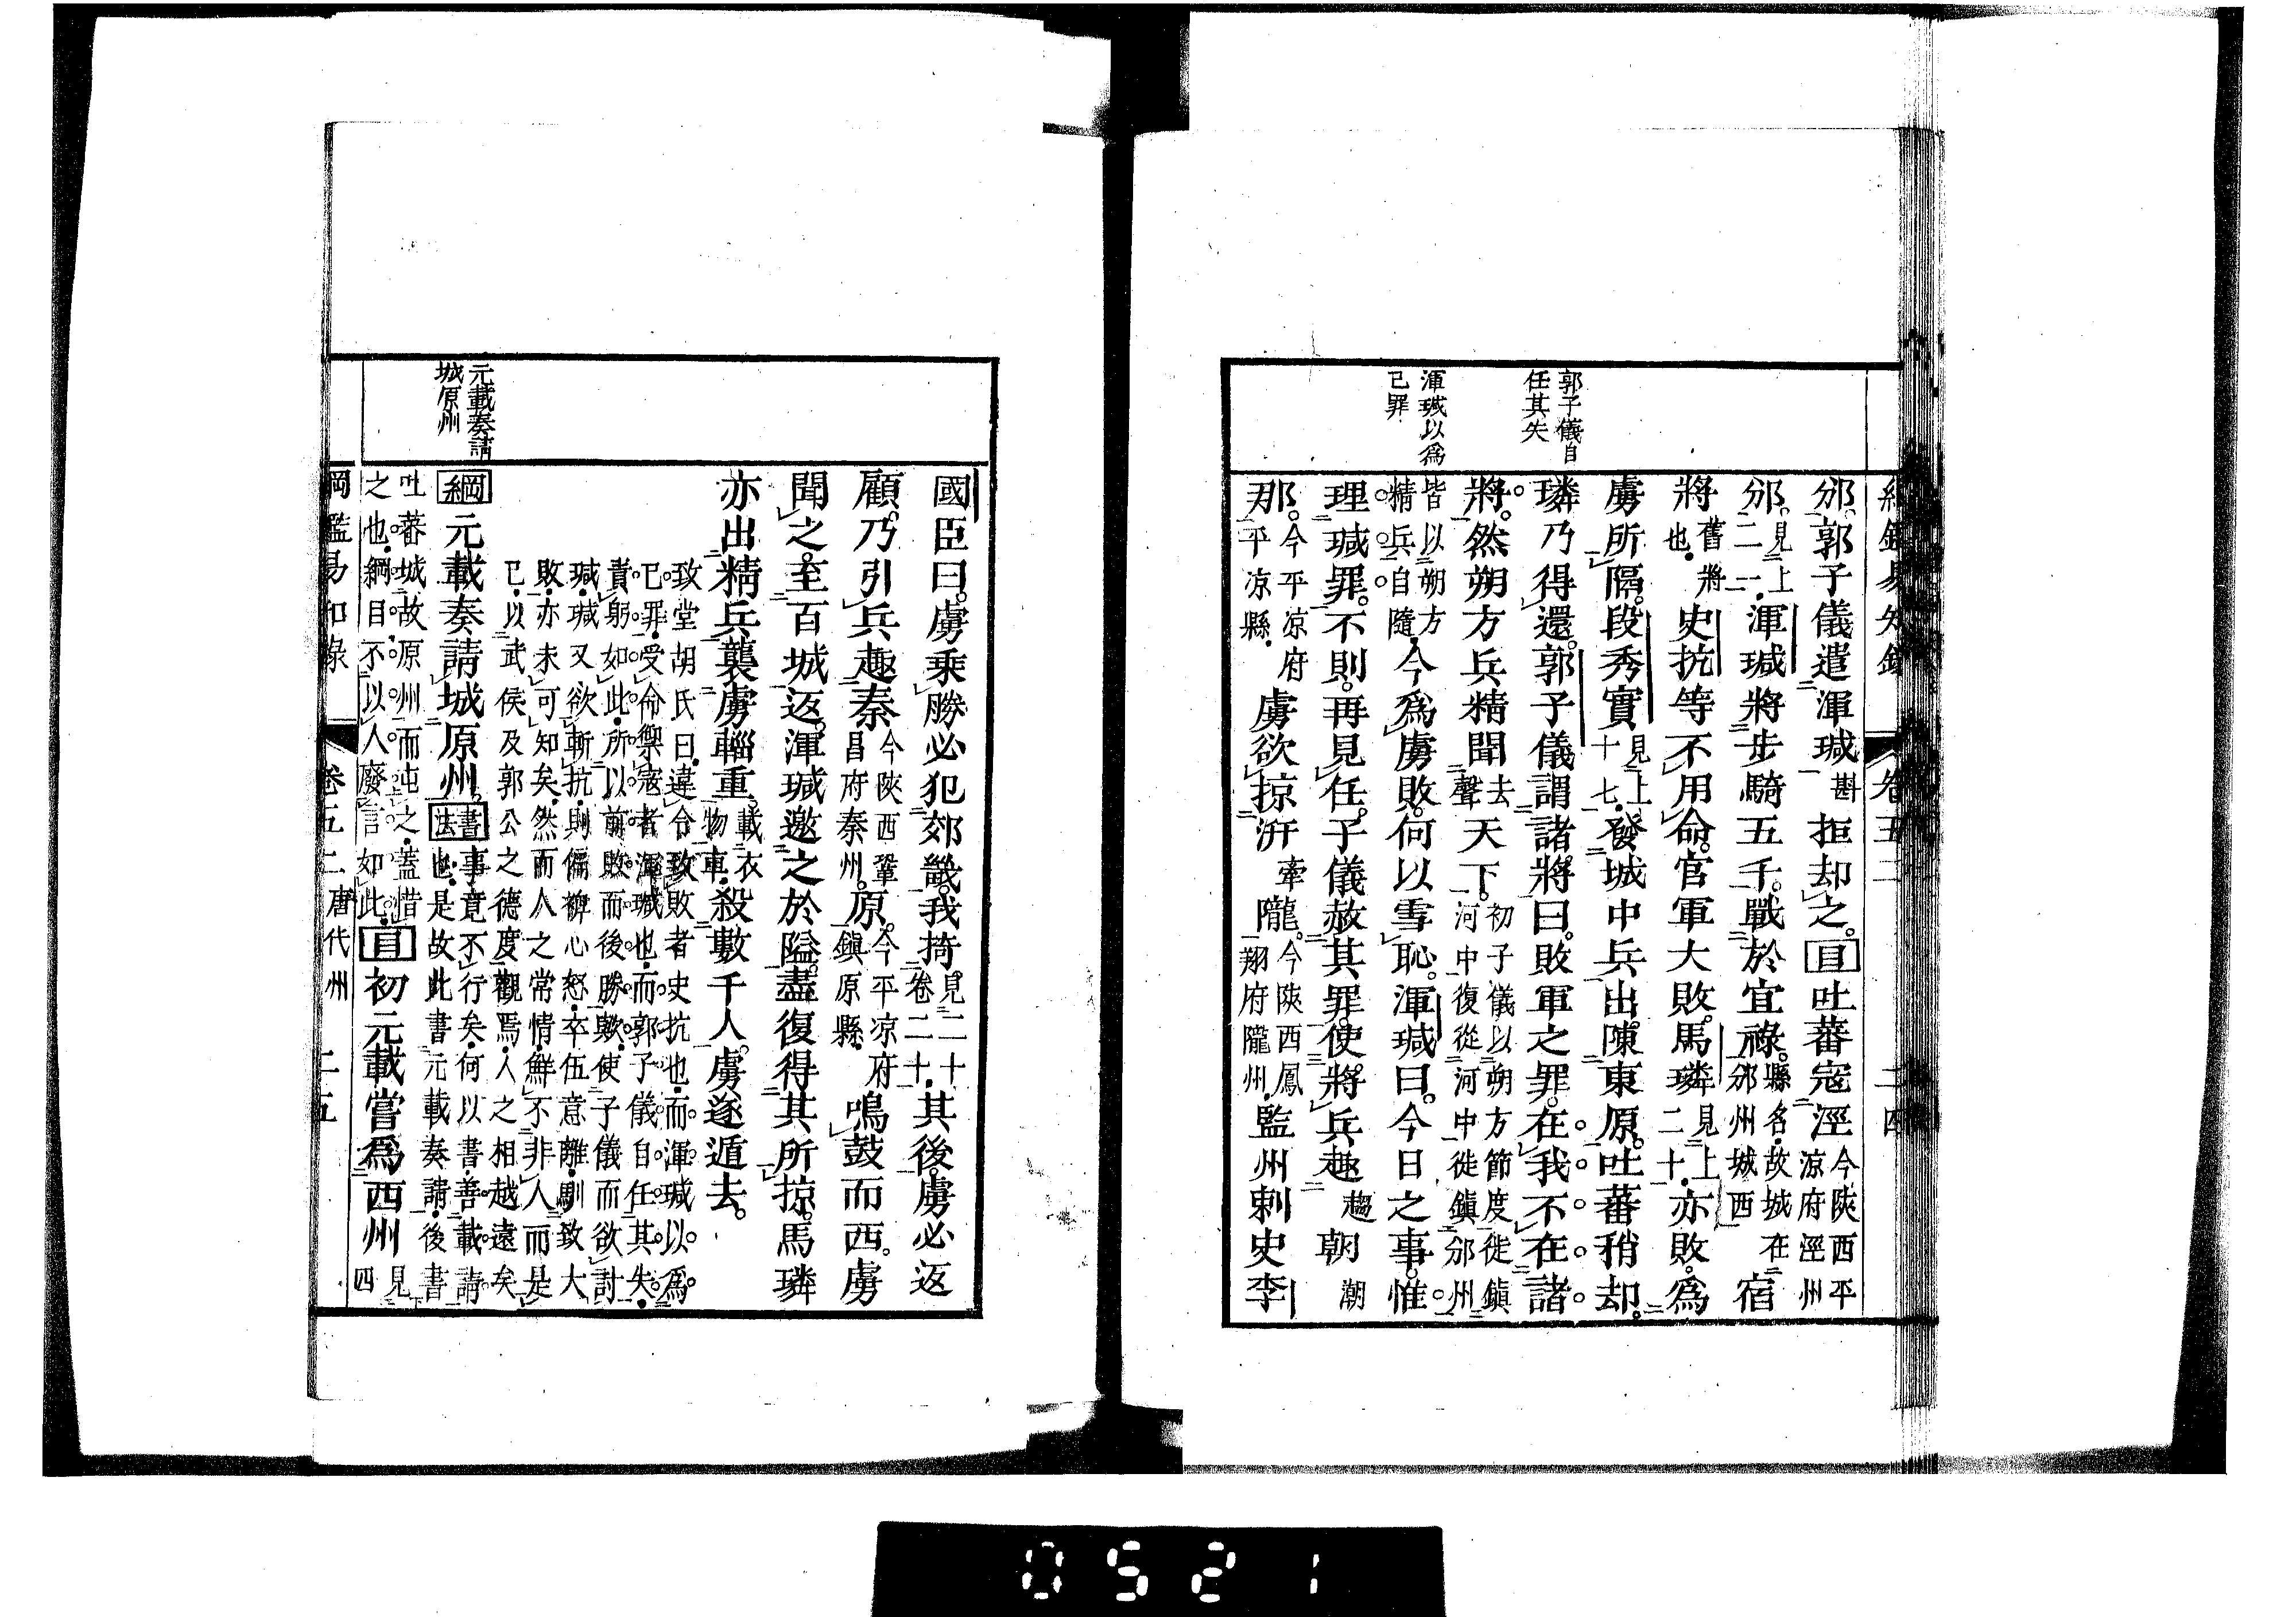 綱鑑易知錄 卷五二 二四
郭子儀自
任其失
渾瑊以爲
己罪
邠。郭子儀遣渾瑊 斟 拒却之。目吐蕃寇涇 今陝西平涼府涇州
邠。見上二一。渾瑊將步騎五千。戰於宜祿。縣名。故城在邠州城西 宿
將 舊將也。史抗等不用命。官軍大敗。馬璘 見上二十。亦敗。爲
虜所隔。段秀實 見上十七。發城中兵出。陳東原。吐蕃稍却。
璘乃得還。郭子儀謂諸將曰。敗軍之罪。在我不在諸
將。然朔方兵精聞 去聲 天下。初子儀以朔方節度徙鎮河中復從河中徙鎮邠州
皆以朔方精兵自隨。今爲虜敗。何以雪恥。渾瑊曰。今日之事。惟
理瑊罪。不則。再見任。子儀赦其罪。使將兵趣 趨 朝 潮
那。今平涼府平凉縣。虜欲掠汧 牽 隴。今陝西鳳翔府隴州。監州刺史李
國臣曰。虜乘勝必犯郊畿。我掎。見二十卷二十。其後。虜必返
顧。乃引兵趣秦 今陝西鞏昌府秦州。原。今平凉府鎮原縣。鳴鼓而西。虜
聞之。至百城返。渾瑊邀之於隘。盡復得其所掠。馬璘
亦出精兵襲虜輜重 載衣物車。殺數千人。虜遂遁去。
致堂胡氏曰。違令致敗者史抗也。而渾瑊以爲
己罪。受命禦寇者渾瑊也。而郭子儀自任其失。
責躬如此。所以前敗而後勝歟。使子儀而欲討
瑊。瑊又欲斬抗。則偏裨心怒。卒伍意離。馴致大
敗。亦未可知矣。然而人之常情。鮮不非人而是
己。以武侯及郭公之德度觀焉。人之相越遠矣
元載奏請
城原州
綱 元載奏請城原州。書法 事竟不行矣。何以書。善載請也。是故此書元載奏請。後書
吐蕃城故原州而屯之。蓋惜之也。綱目不以人廢言如此。目 初元載嘗爲西州 見下四
綱鑑易知錄 卷五二 唐代州 二五
0521